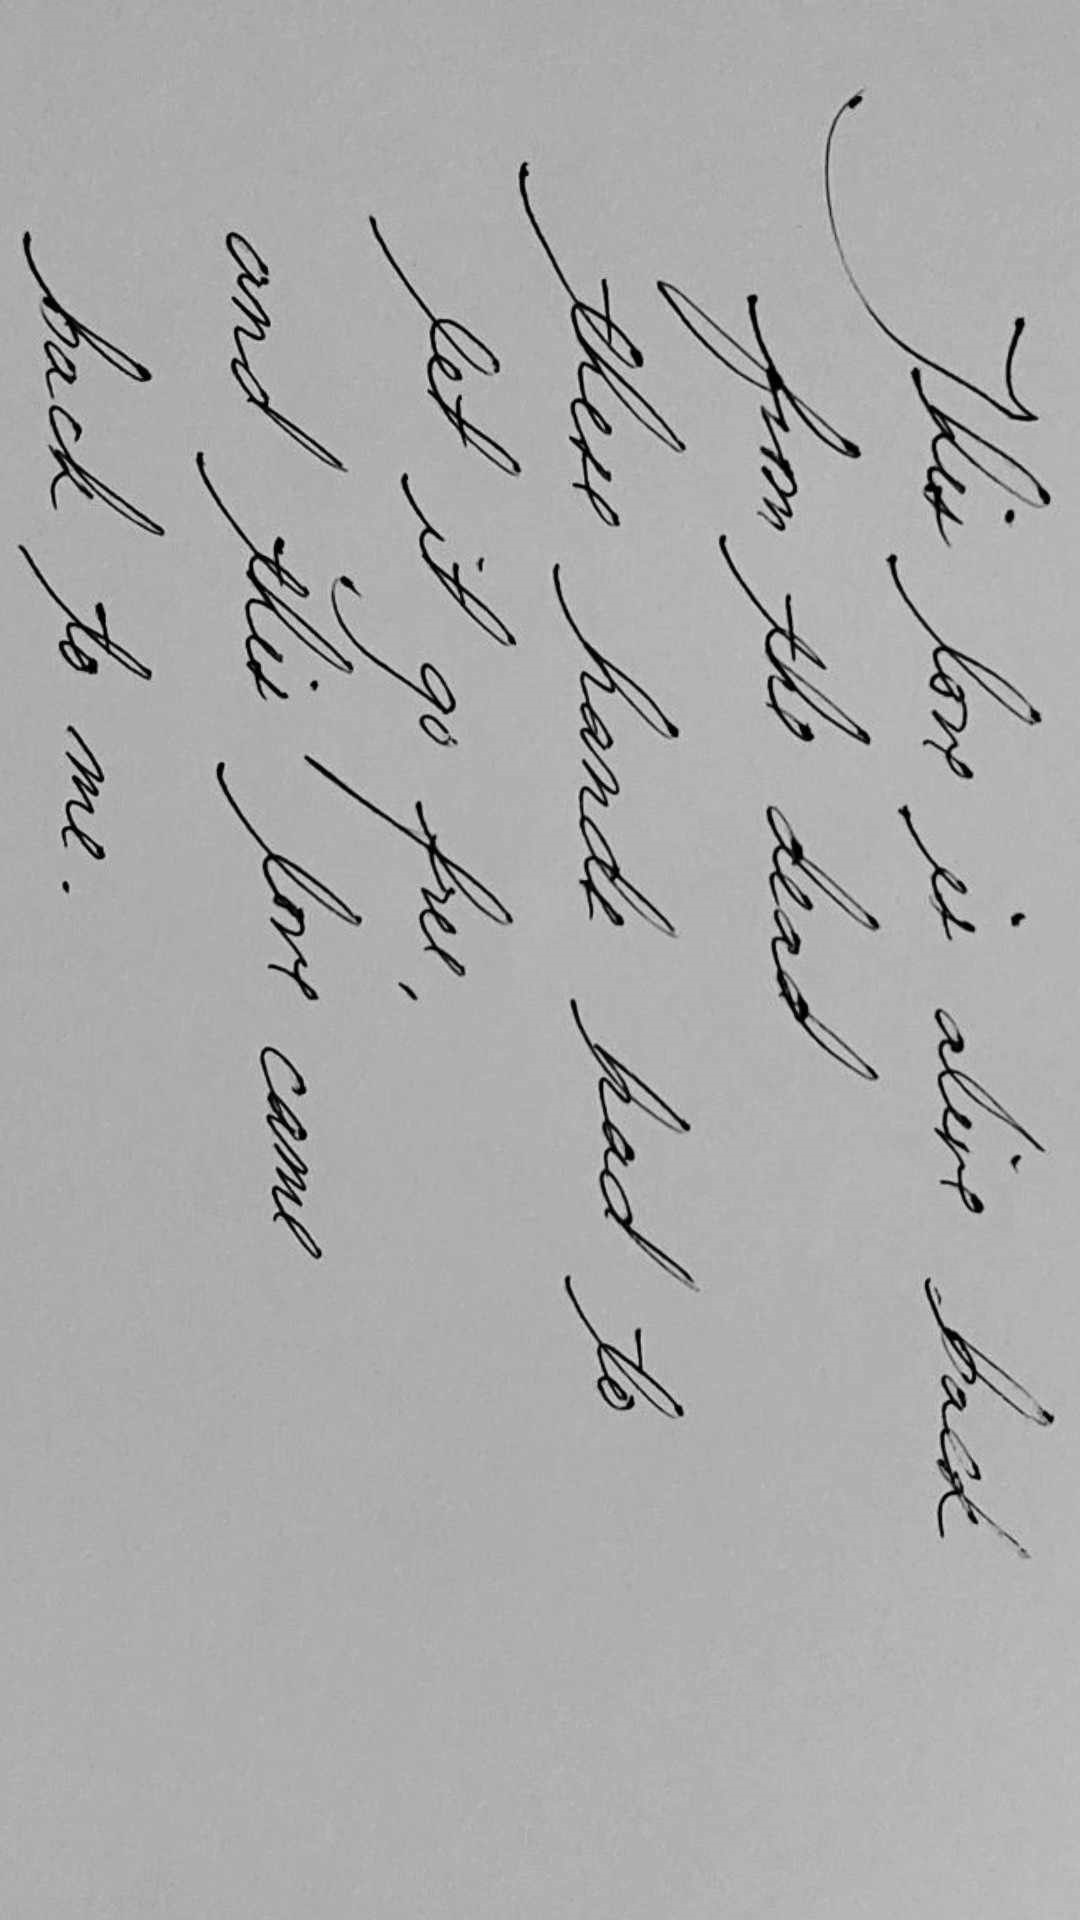 This love is alive back
from the dead
these hands had to
let it go free,
and this love came
back to me.